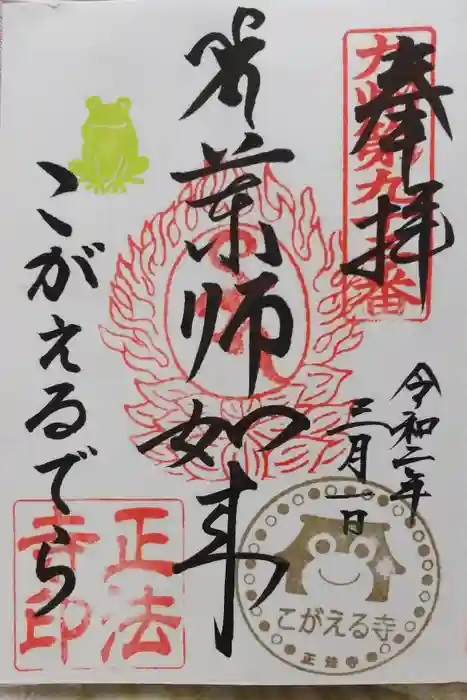 奉拝
令和二年
三月一日
薬師如来
こがえるでら
正法
寺印
こがえる寺
正法寺